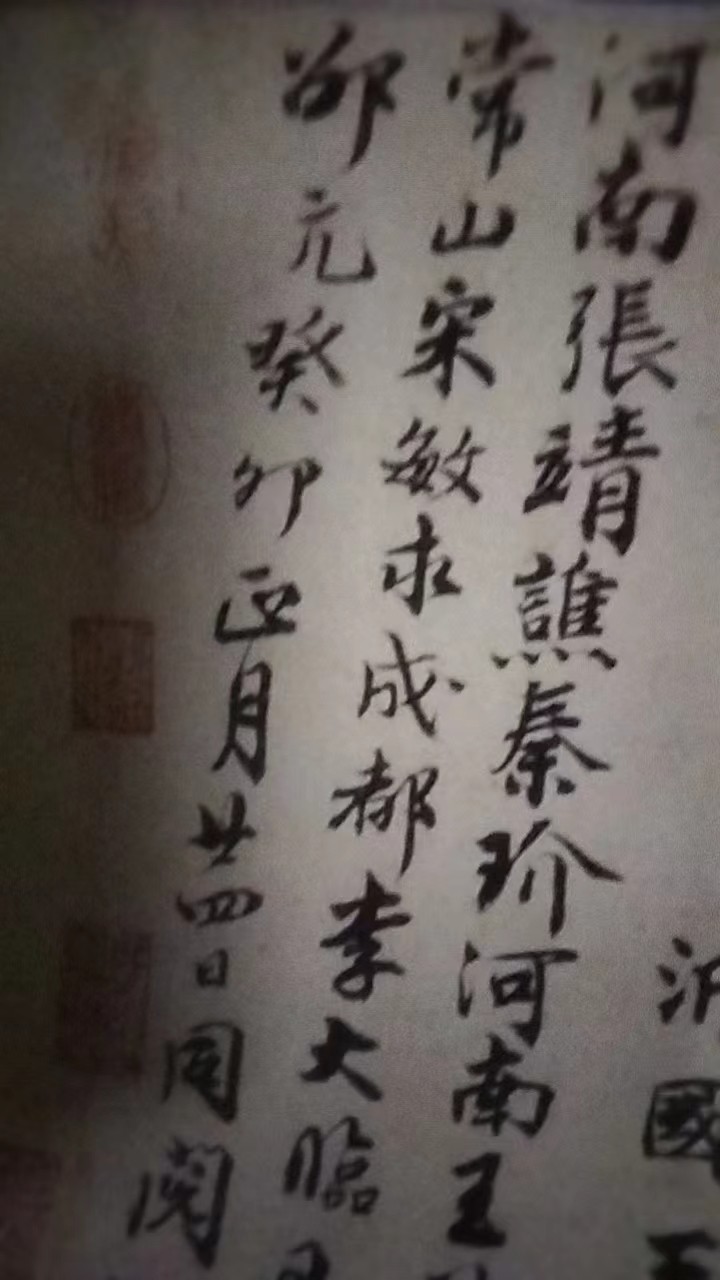 國
河南張靖譙秦玠河南王
常山宋敏求成都李大臨
邵亢癸卯正月廿四日同閱